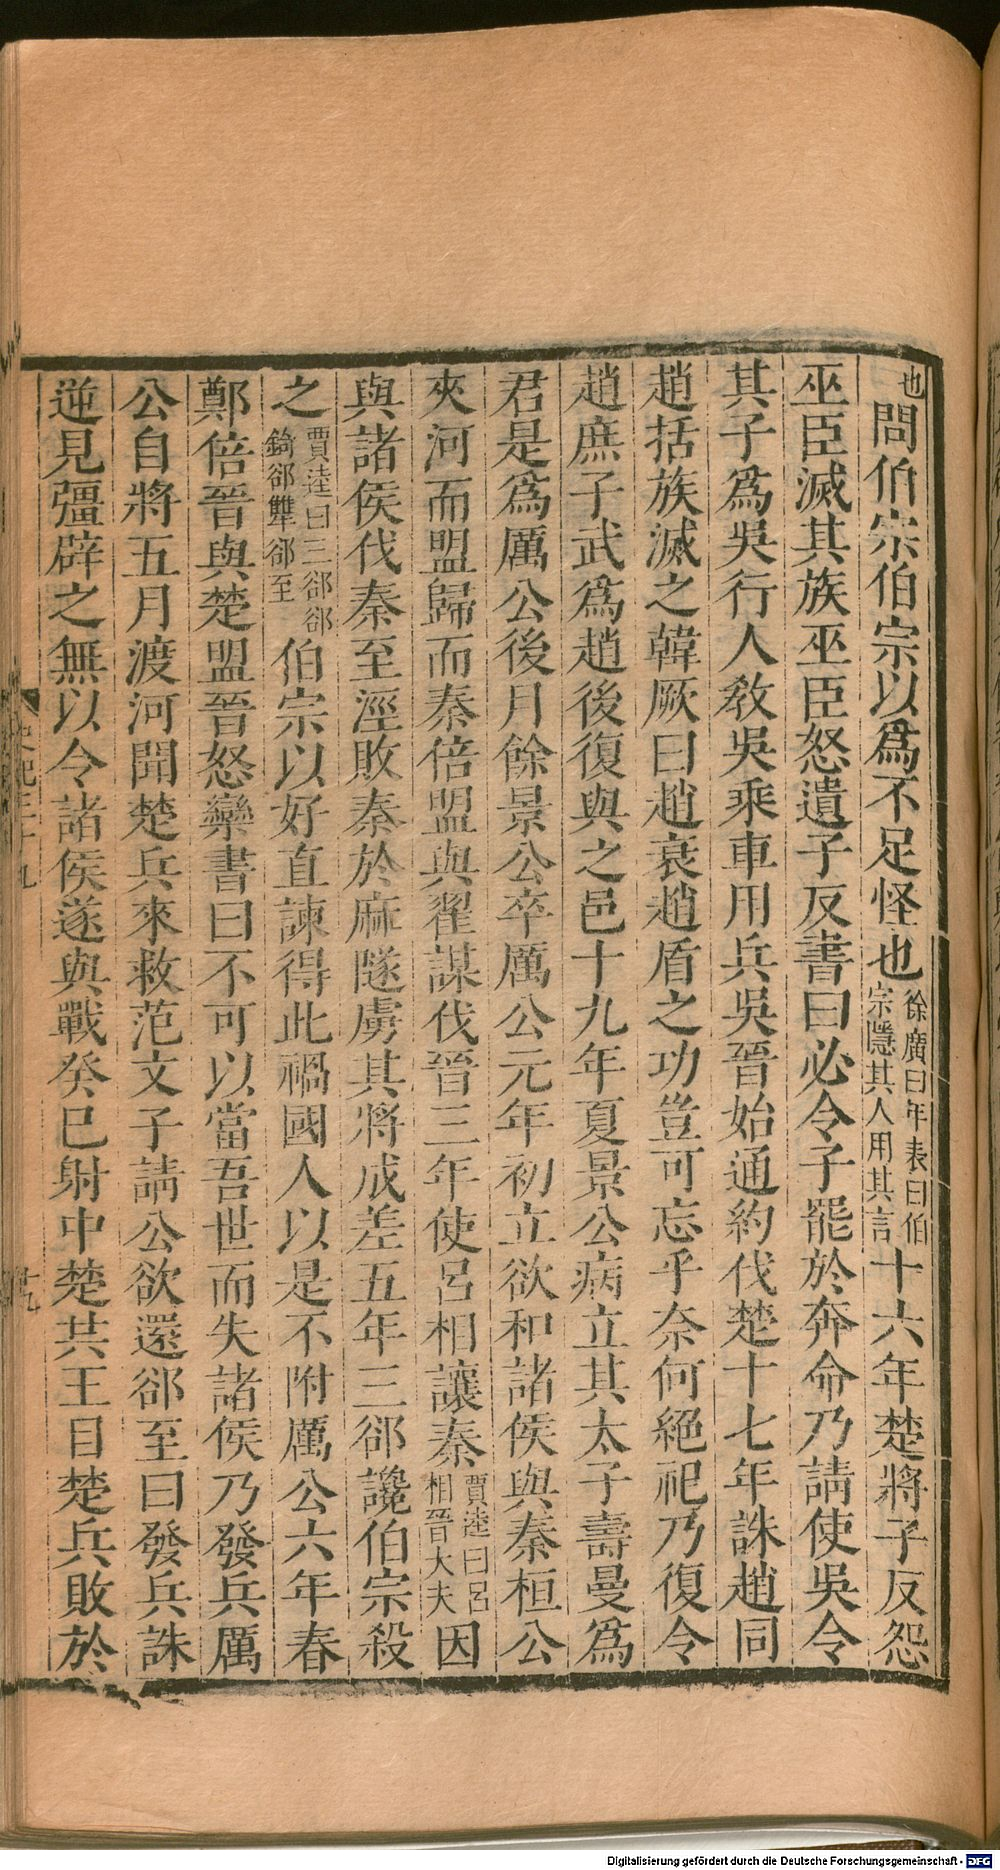 也問伯宗伯宗以爲不足怪也徐廣曰年表曰伯宗隱其人用其言十六年楚將子反怨
巫臣滅其族巫臣怒遺子反書曰必令子罷於奔命乃請使吳令
其子爲吳行人敎吳乘車用兵吳晉始通約伐楚十七年誅趙同
趙括族滅之韓厥曰趙衰趙盾之功豈可忘乎奈何絕祀乃復令
趙庶子武爲趙後復與之邑十九年夏景公病立其太子壽曼爲
君是爲厲公後月餘景公卒厲公元年初立欲和諸侯與秦桓公
夾河而盟歸而秦倍盟與翟謀伐晉三年使呂相讓秦賈逵曰呂相晉大夫因
與諸侯伐秦至涇敗秦於麻隧虜其將成差五年三郤讒伯宗殺
之賈逵曰三郤郤錡郤犨郤至伯宗以好直諫得此禍國人以是不附厲公六年春
鄭倍晉與楚盟晉怒欒書曰不可以當吾世而失諸侯乃發兵厲
公自將五月渡河聞楚兵來救范文子請公欲還郤至曰發兵誅
逆見彊辟之無以令諸侯遂與戰癸巳射中楚共王目楚兵敗於
十九
Digitalisierung gefördert durch die Deutsche Forschungsgemeinschaft - DFG